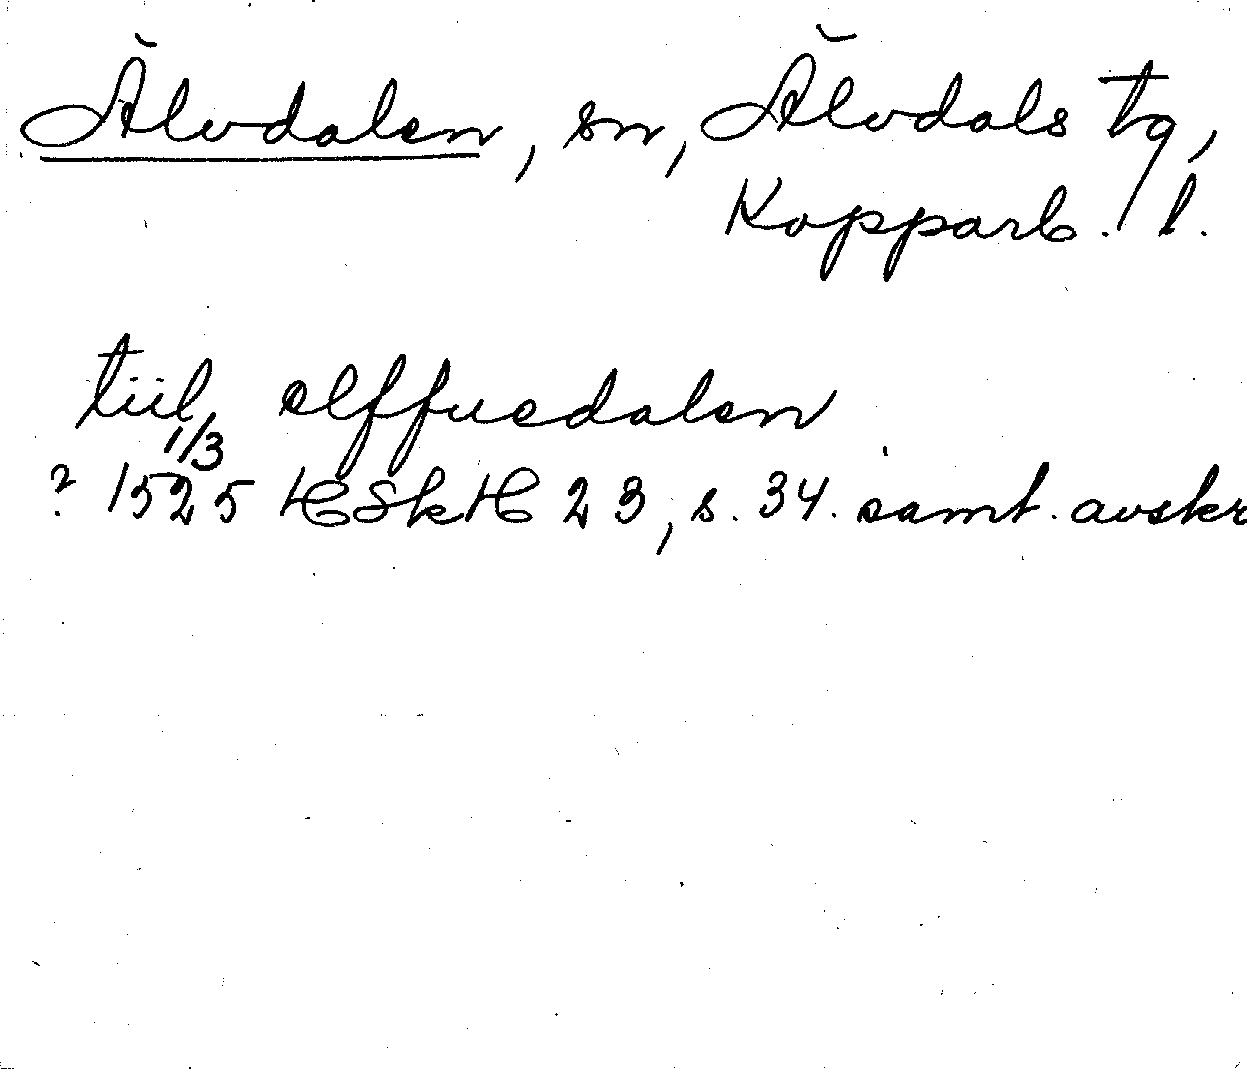 Älvdalen, sn, Älvdals tg,
Kopparb. l.
tiil elffuedalen
1/3
? 1525 HSkH 23, s. 34. samt. avskr